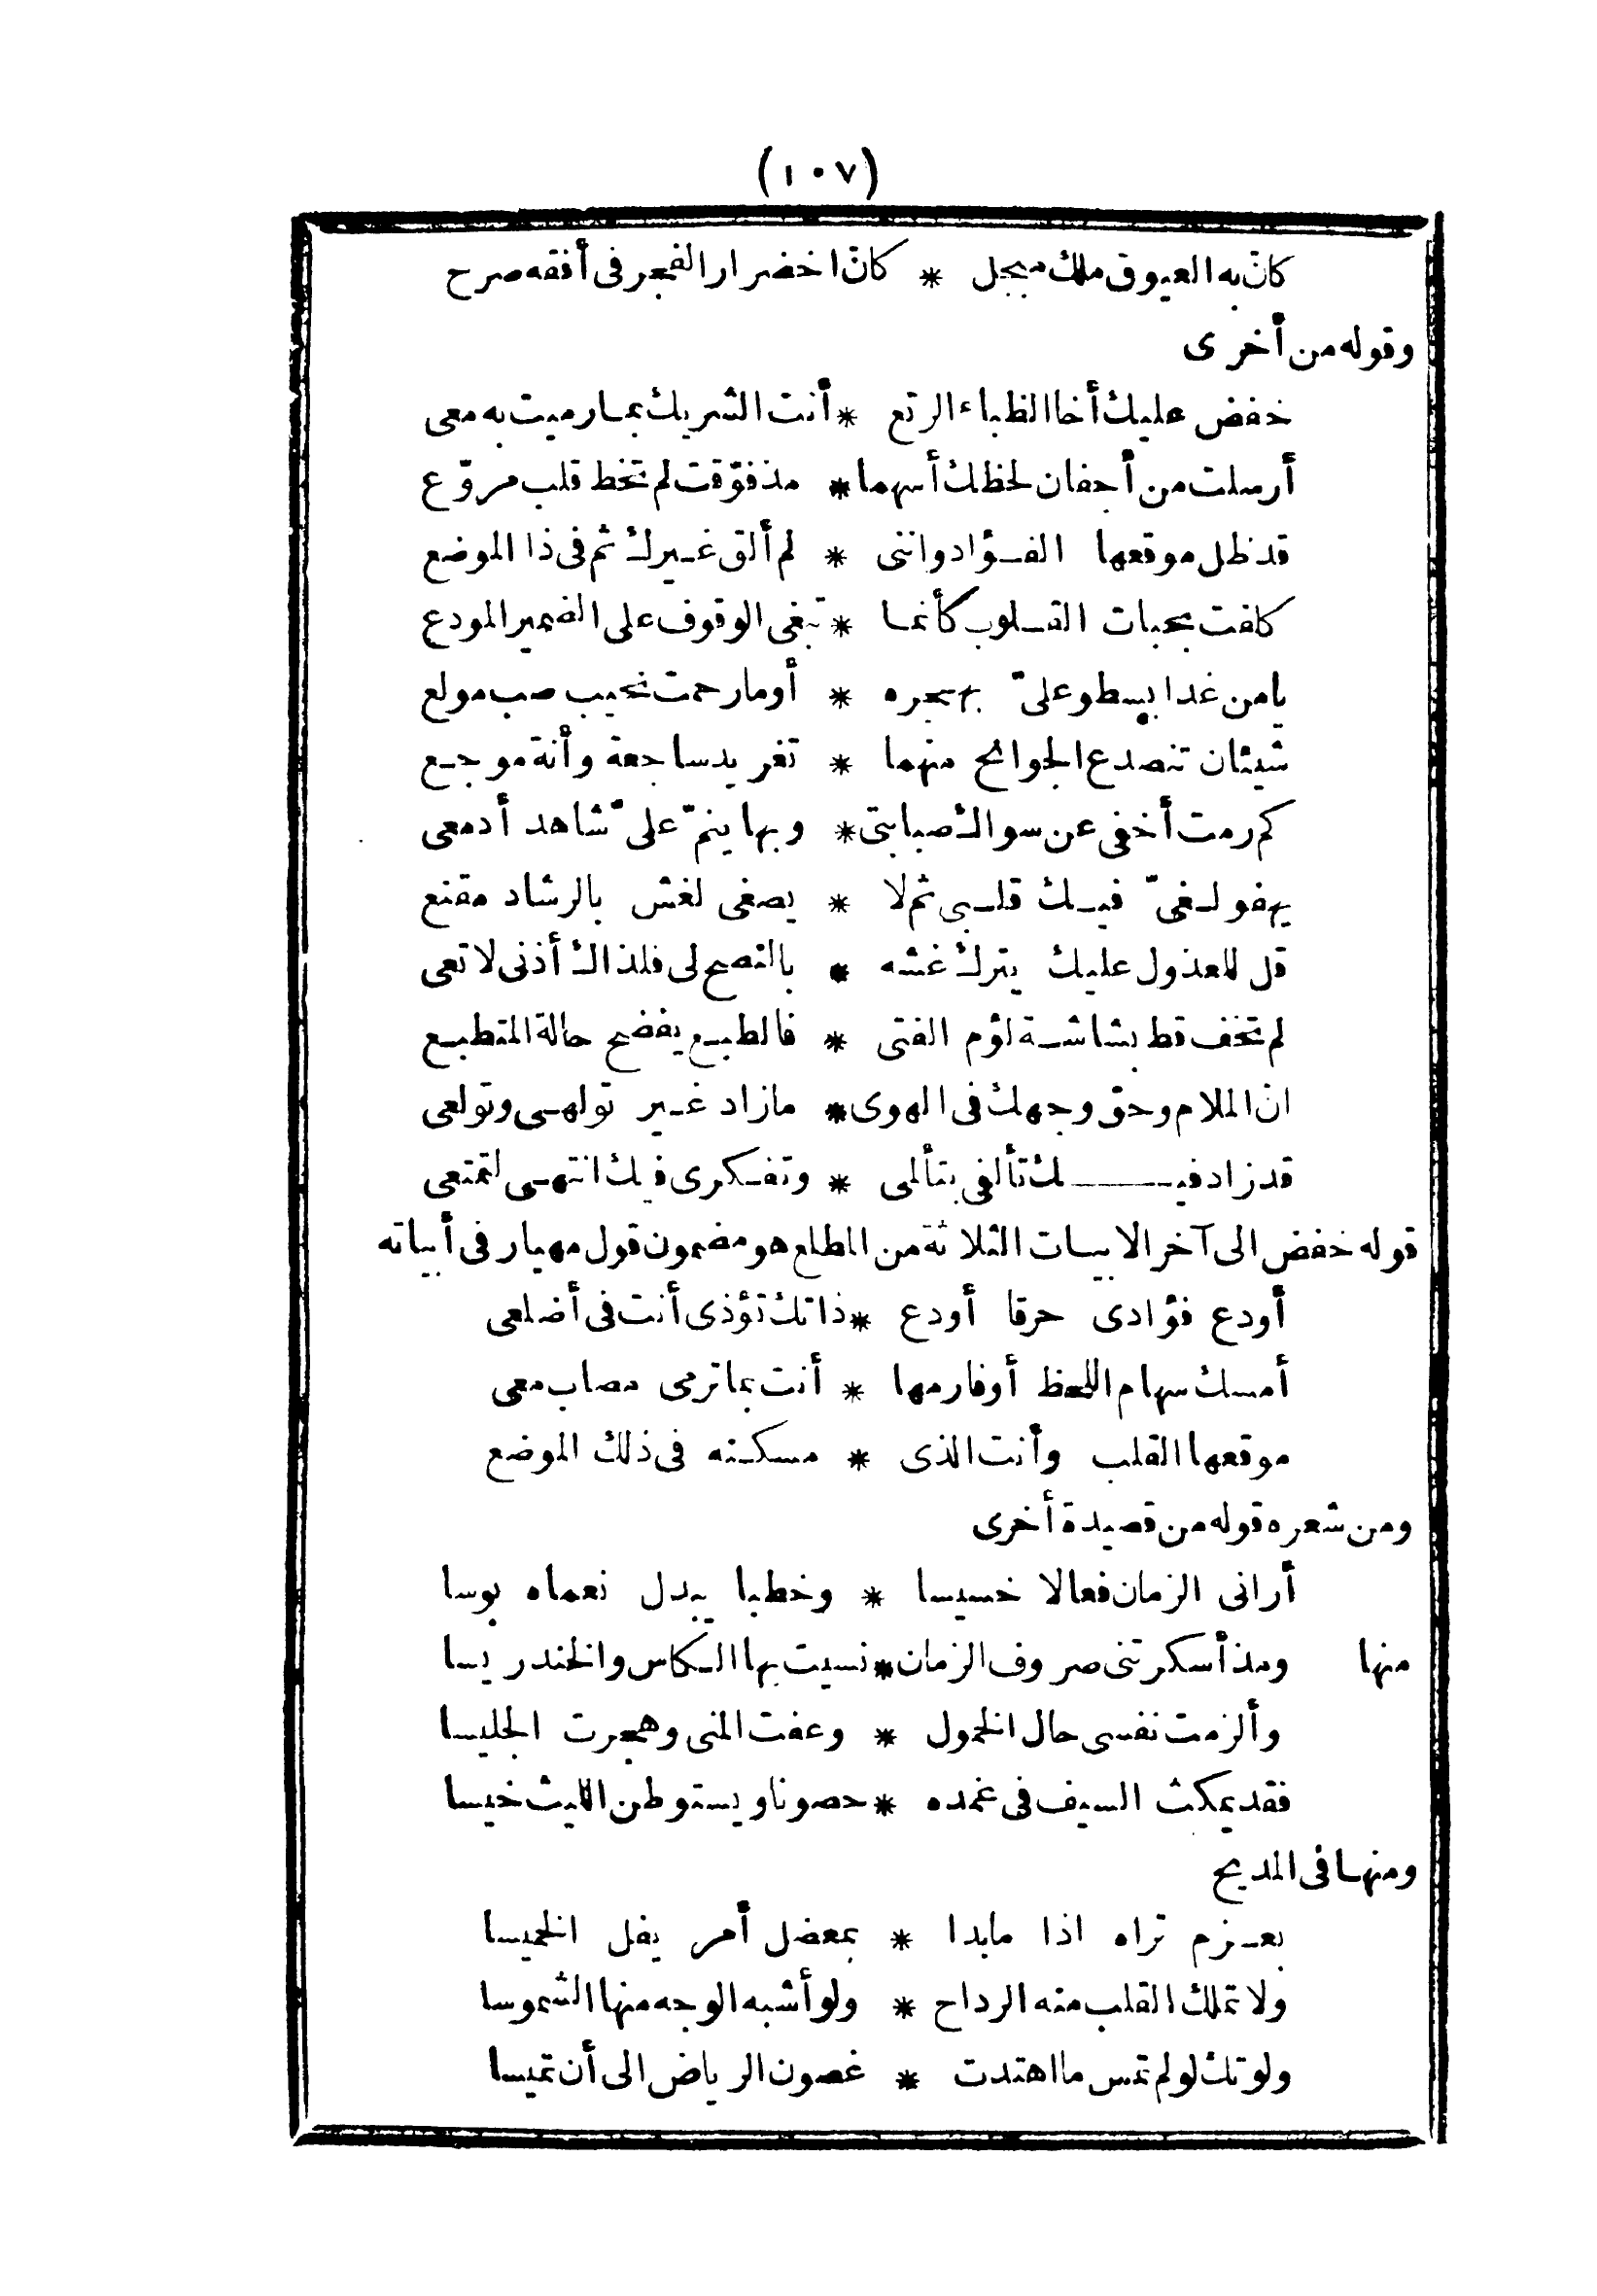 (١٠٧)
كانّ به العيوق ملك مبجل * كانّ اخضرار الفجر فى أفقه صرح
وقوله من أخرى
خفض عليك أخا الظباء الرتع * أنت الشريك بما رميت به معى
أرسلت من أجفان لحظك أسهما * مذ فوّقت لم تخط قلب مروّع
قد ظل موقعها الفؤاد واننى * لم ألق غيرك ثم فى ذا الموضع
كلفت بحبات القلوب كأنما * تبغى الوقوف على الضمير المودع
يا من غدا يسطو علىّ بهجره * أو ما رحمت نحيب صب مولع
شيئان تنصدع الجوانح منهما * تغريد ساجعة وأنة موجع
كم رمت أخفى عن سواك صبابتى * وبها ينمّ علىّ شاهد أدمعى
يهفو لغىّ فيك قلبى ثم لا * يصغى لغش بالرشاد مقنع
قل للعذول عليك يترك غشه * بالنصح لى فلذاك أذنى لا تعى
لم تخف قط بشاشة لؤم الفتى * فالطبع يفضح حالة المتطبع
ان الملام وحق وجهك فى الهوى * مازاد غير تولهى وتولعى
قد زاد فيك تألفى بتألمى * وتفكرى فيك انتهى لتمتعى
قوله خفض الى آخر الابيات الثلاثة من المطلع هو مضمون قول مهيار فى أبياته
أودع فؤادى حرقا أودع * ذاتك تؤذى أنت فى أضلعى
أمسك سهام اللحظ أو فارمها * أنت بما ترمى مصاب معى
موقعها القلب وأنت الذى * مسكنه فى ذلك الموضع
ومن شعره قوله من قصيدة أخرى
أرانى الزمان فعالا خسيسا * وخطبا يبدل نعماه بوسا
منها ومذ أسكرتنى صروف الزمان * نسيت بها الكاس والخندريسا
وألزمت نفسى حال الخمول * وعفت المنى وهجرت الجليسا
فقد يمكث السيف فى غمده * حصونا ويستوطن الليث خيسا
ومنها فى المديح
بعزم تراه اذا مابدا * بمعضل أمر يفل الخميسا
ولا تملك القلب منه الرداح * ولو أشبه الوجه منها الشموسا
ولو تك لو لم تمس ما اهتدت * غصون الرياض الى أن تميسا